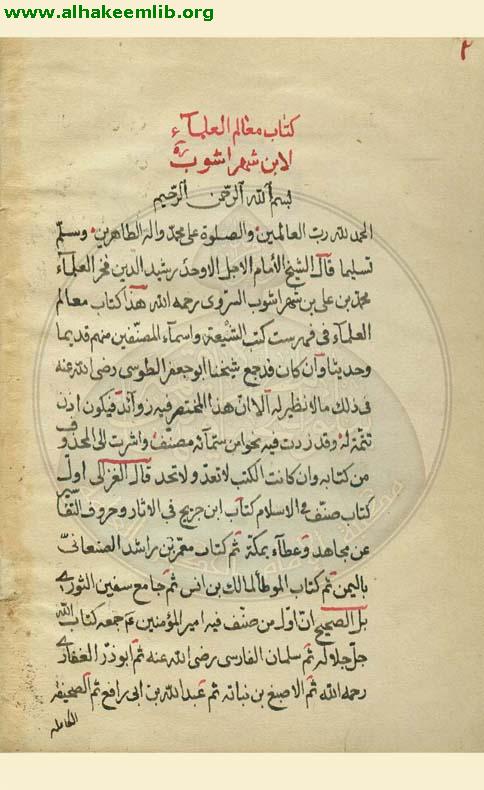 www.alhakeemlib.org
٢
كتاب معالم العلماء
لابن شهراشوب ره
بسم الله الرحمن الرحيم
الحمد لله رب العالمين والصلوة على محمد واله الطاهرين وسلم
تسليما قال الشيخ الامام الاجل الاوحد رشيد الدين فخر العلماء
محمد بن على بن شهراشوب السروى رحمه الله هذا كتاب معالم
العلماء فى فهرست كتب الشيعة واسماء المصنفين منهم قديما
وحديثا وان كان قد جمع شيخنا ابو جعفر الطوسى رضى الله عنه
فى ذلك مالا نظير له الا ان هذا المختصر فيه زوائد فيكون اذن
تتمة له وقد زدت فيه نحوا من ستمائة مصنف واشرت الى المحذوف
من كتابه وان كانت الكتب لا تعد ولا تحد قال الغزالى اول
كتاب صنف فى الاسلام كتاب ابن جريج فى الاثار وحروف التفاسير
عن مجاهد وعطاء بمكة ثم كتاب معمر بن راشد الصنعانى
باليمن ثم كتاب الموطا لمالك بن انس ثم جامع سفين الثورى
بل الصحيح ان اول من صنف فيه امير المؤمنين ءم جمعه كتاب الله
جل جلاله ثم سلمان الفارسى رضى الله عنه ثم ابوذر الغفارى
رحمه الله ثم الاصبغ بن نباته ثم عبد الله بن ابى رافع ثم الصحيفه
الكامله